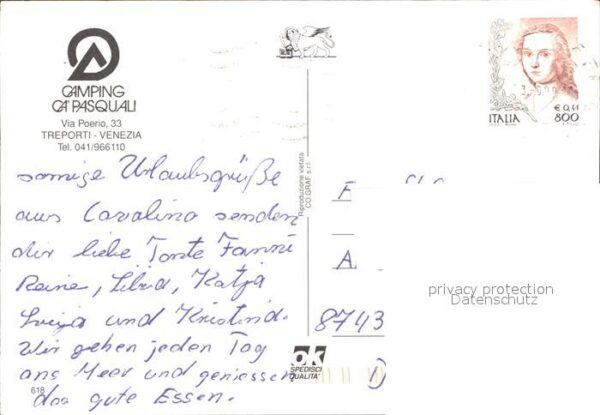 CAMPING
CA' PASQUALI
Via Poerio, 33
TREPORTI - VENEZIA
Tel. 041/966110
sonnige Urlaubsgrüße
aus Cavalino senden
dir liebe Tante Fanni
Reine, Katja
und
Wir gehen jeden Tag
ans Meer und geniessen
das gute Essen.
618
Riproduzione vietata
CO.GRAF s.r.l.
ok
SPEDISCI
QUALITÀ
ITALIA
€ 0,41
800
F
A
8743
D
privacy protection
Datenschutz